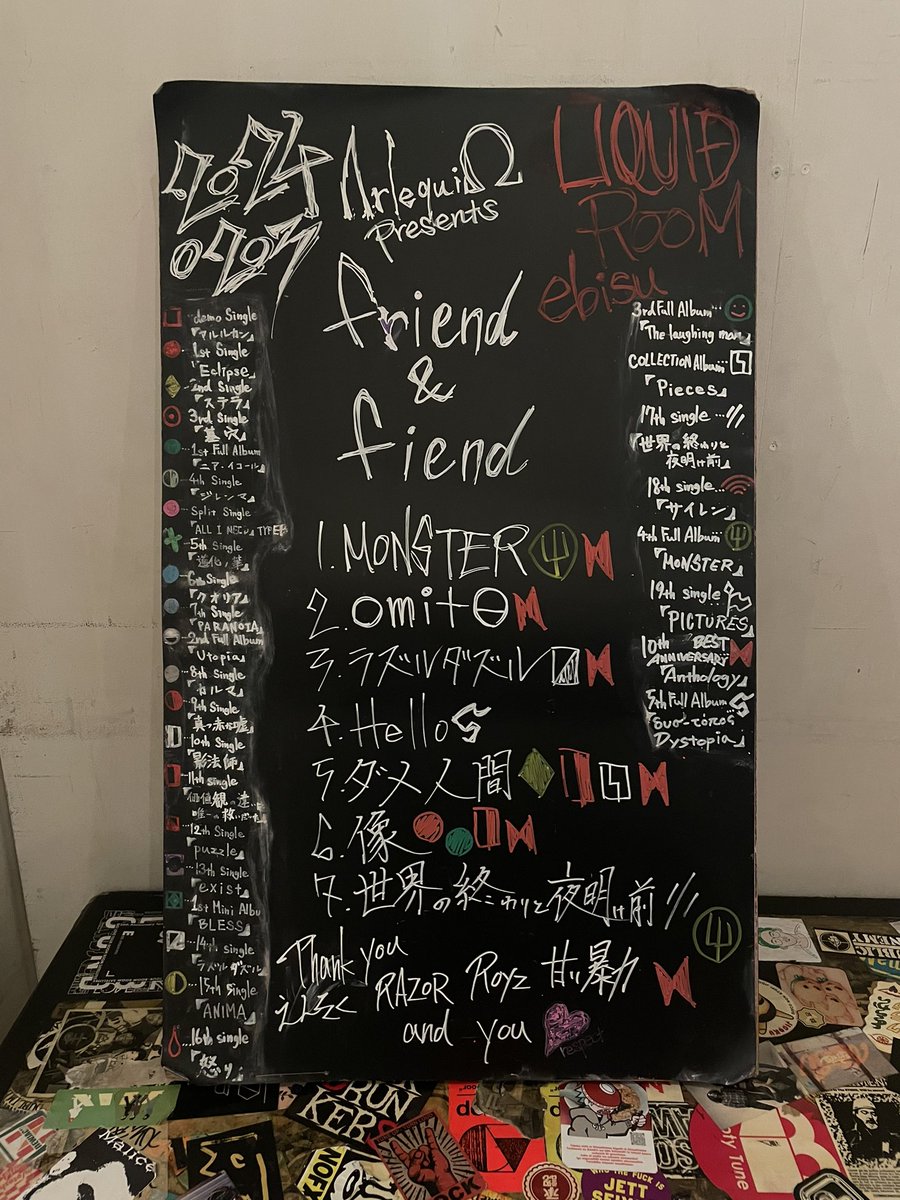 2024
0703
ArlequiΩ
presents
LIQUID
ROOM
ebisu
friend
&
fiend
demo Single
『アルルカン』
1st Single
『Eclipse』
2nd Single
『ステラ』
3rd Single
『墓穴』
1st Full Album
『ニア・イコール』
4th Single
『ジレンマ』
Split Single
『ALL I NEED』TYPE
5th Single
『道化ノ華』
6th Single
『クオリア』
7th Single
『PARANOIA』
2nd Full Album
『Utopia』
8th Single
『カルマ』
9th Single
『真っ赤な嘘』
10th Single
『影法師』
11th single
『価値観の違いは
唯一の救いだった』
12th Single
『puzzle』
13th Single
『exist』
1st Mini Albu
『BLESS』
14th single
『ラズルダズル』
15th Single
『ANIMA』
16th single
『怒り』
3rd Full Album
『The laughing man』
COLLECTION Album
『Pieces』
17th single
『世界の終わりと
夜明け前』
18th single
『サイレン』
4th Full Album
『MONSTER』
19th single
『PICTURES』
10th BEST
ANNIVERSARY
『Anthology』
5th Full Album
Dystopia』
1. MONSTER
2. omit
3. ラズルダズル
4. Hello
5. ダメ人間
6. 像
7. 世界の終わりと夜明け前
Thank you
えんそく RAZOR Royz 甘い暴力
and you
respect
malice
NOFX
KER
JETT
ty Tune